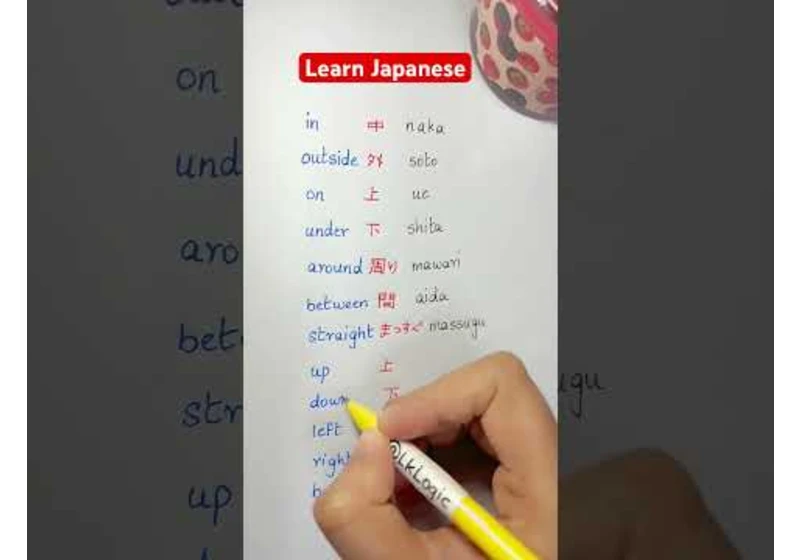 Learn Japanese
in 中 naka
outside 外 soto
on 上 ue
under 下 shita
around 周り mawari
between 間 aida
straight まっすぐ massugu
up 上
down 下
left
right
@LkLogic